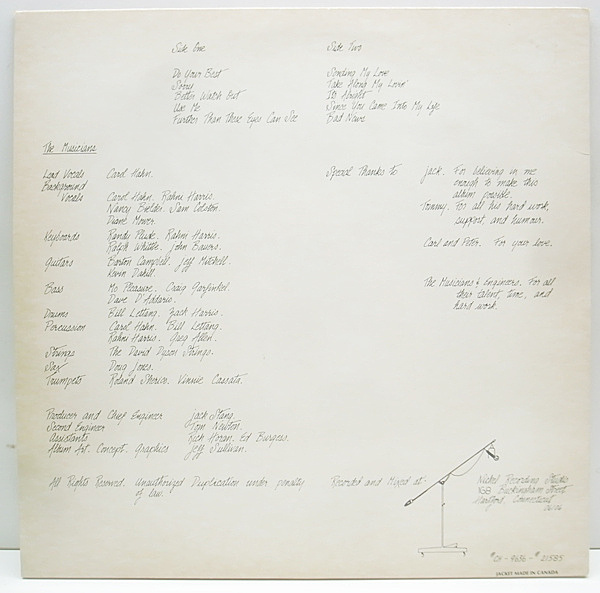 Side One
Do Your Best
Sorry
Better Watch Out
Use Me
Further Than These Eyes Can See
Side Two
Sending My Love
Take Along My Lovin'
It's Alright
Since You Came Into My Life
Bad News
The Musicians
Lead Vocals Carol Hahn.
Background
Vocals Carol Hahn. Rahni Harris.
Nancy Sam
Diane Mower.
Keyboards Randy Rahni Harris.
Ralph Whittle. John Bauers.
Guitars Barton Campbell. Jeff Mitchell.
Kevin Dahill.
Bass Mo Pleasure. Craig Garfinkel.
Dave D'Addario.
Drums Bill Lettang. Zack Harris.
Percussion Carol Hahn. Bill Lettang.
Rahni Harris. Greg Allen.
Strings The David Dyson Strings.
Sax Doug Jones.
Trumpets Roland Vinnie Cassata.
Special Thanks to Jack. For believing in me
enough to make this
album possible.
Tommy. For all his hard work,
support, and humour.
Carl and Peter. For your love.
The Musicians & Engineers. For all
their talent, time, and
hard work.
Producer and Chief Engineer Jack Stang.
Second Engineer Tom Newton.
Assistants Rich Horan. Ed Burgess.
Album Art. Concept. Graphics Jeff Sullivan.
All Rights Reserved. Unauthorized Duplication under penalty
of law.
Recorded and Mixed at:
Nickel Recording Studio
168 Buckingham Street
Hartford, Connecticut
06106
#CH-9636-#21585
JACKET MADE IN CANADA